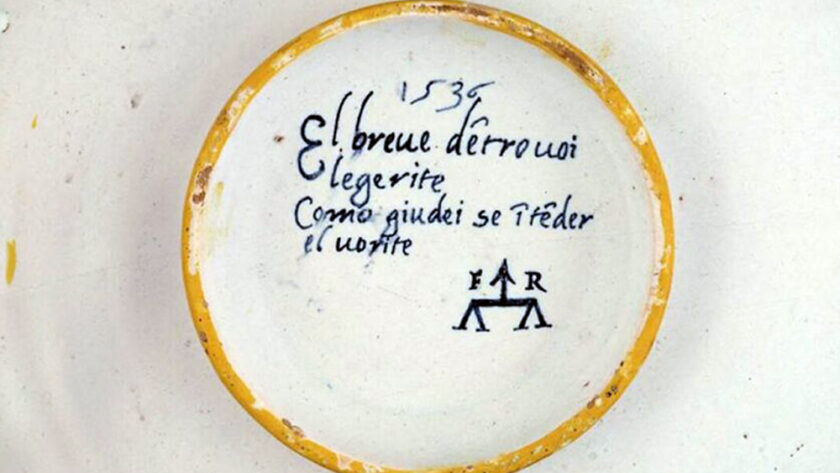 1536
El breue dêtro uoi
legerite
Como giudei se îtêder
el uorite
F R